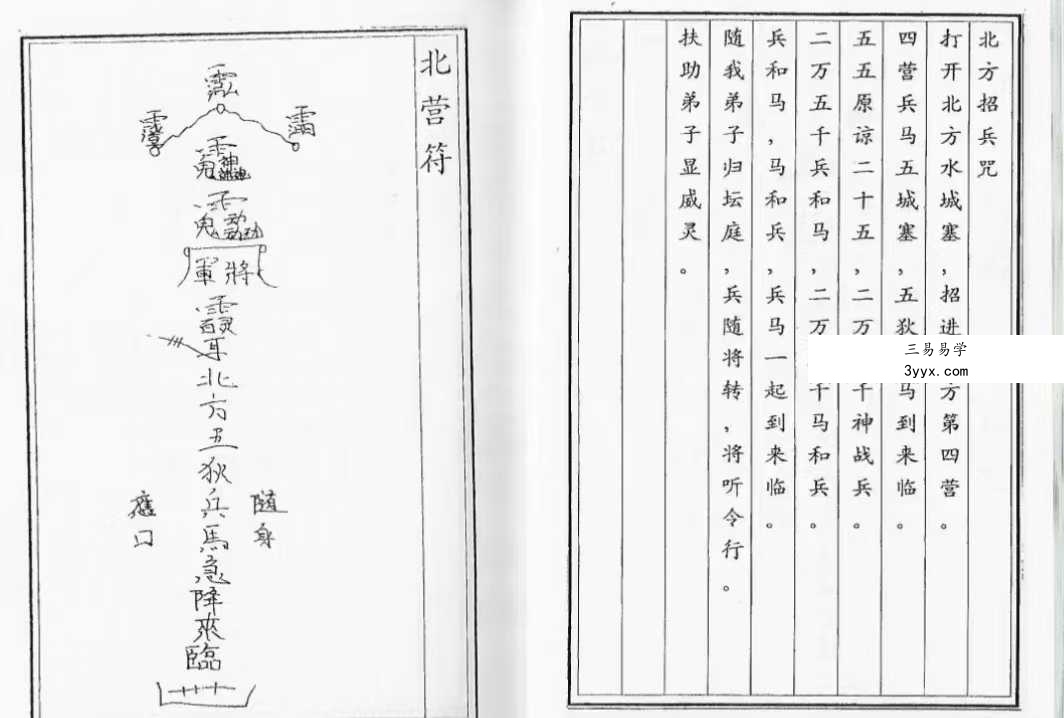 北方招兵咒
打开北方水城塞，招进方第四营。
四营兵马五城塞，五狄马到来临。
五五原谅二十五，二万千神战兵。
二万五千兵和马，二万千马和兵。
兵和马，马和兵，兵马一起到来临。
随我弟子归坛庭，兵随将转，将听令行。
扶助弟子显威灵。
三易易学
3yyx.com
北营符
將軍
北方五狄兵馬急降來臨
隨身
應口